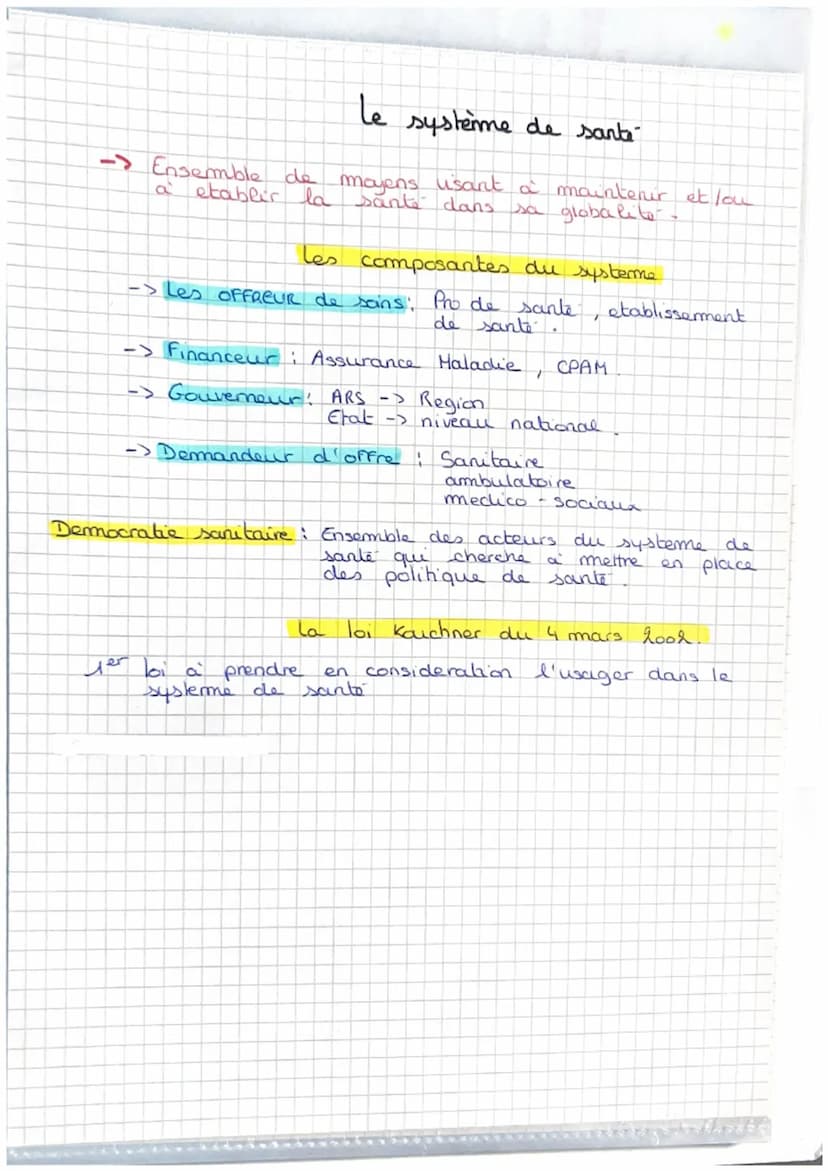 Le système de santé
-> Ensemble de moyens visant à maintenir et/ou
à etablir la santé dans sa globalité.
Les composantes du systeme
-> Les OFFREUR de soins: Pro de santé, etablissement
de santé.
-> Financeur : Assurance Maladie, CPAM.
-> Gouverneur: ARS -> Region
Etat -> niveau national.
-> Demandeur d'offre : Sanitaire
ambulatoire
medico-sociaux
Democratie sanitaire : Ensemble des acteurs du systeme de
santé qui cherche à mettre en place
des politique de santé.
La loi Kouchner du 4 mars 2002.
1er loi à prendre en consideration l'usager dans le
systeme de santé